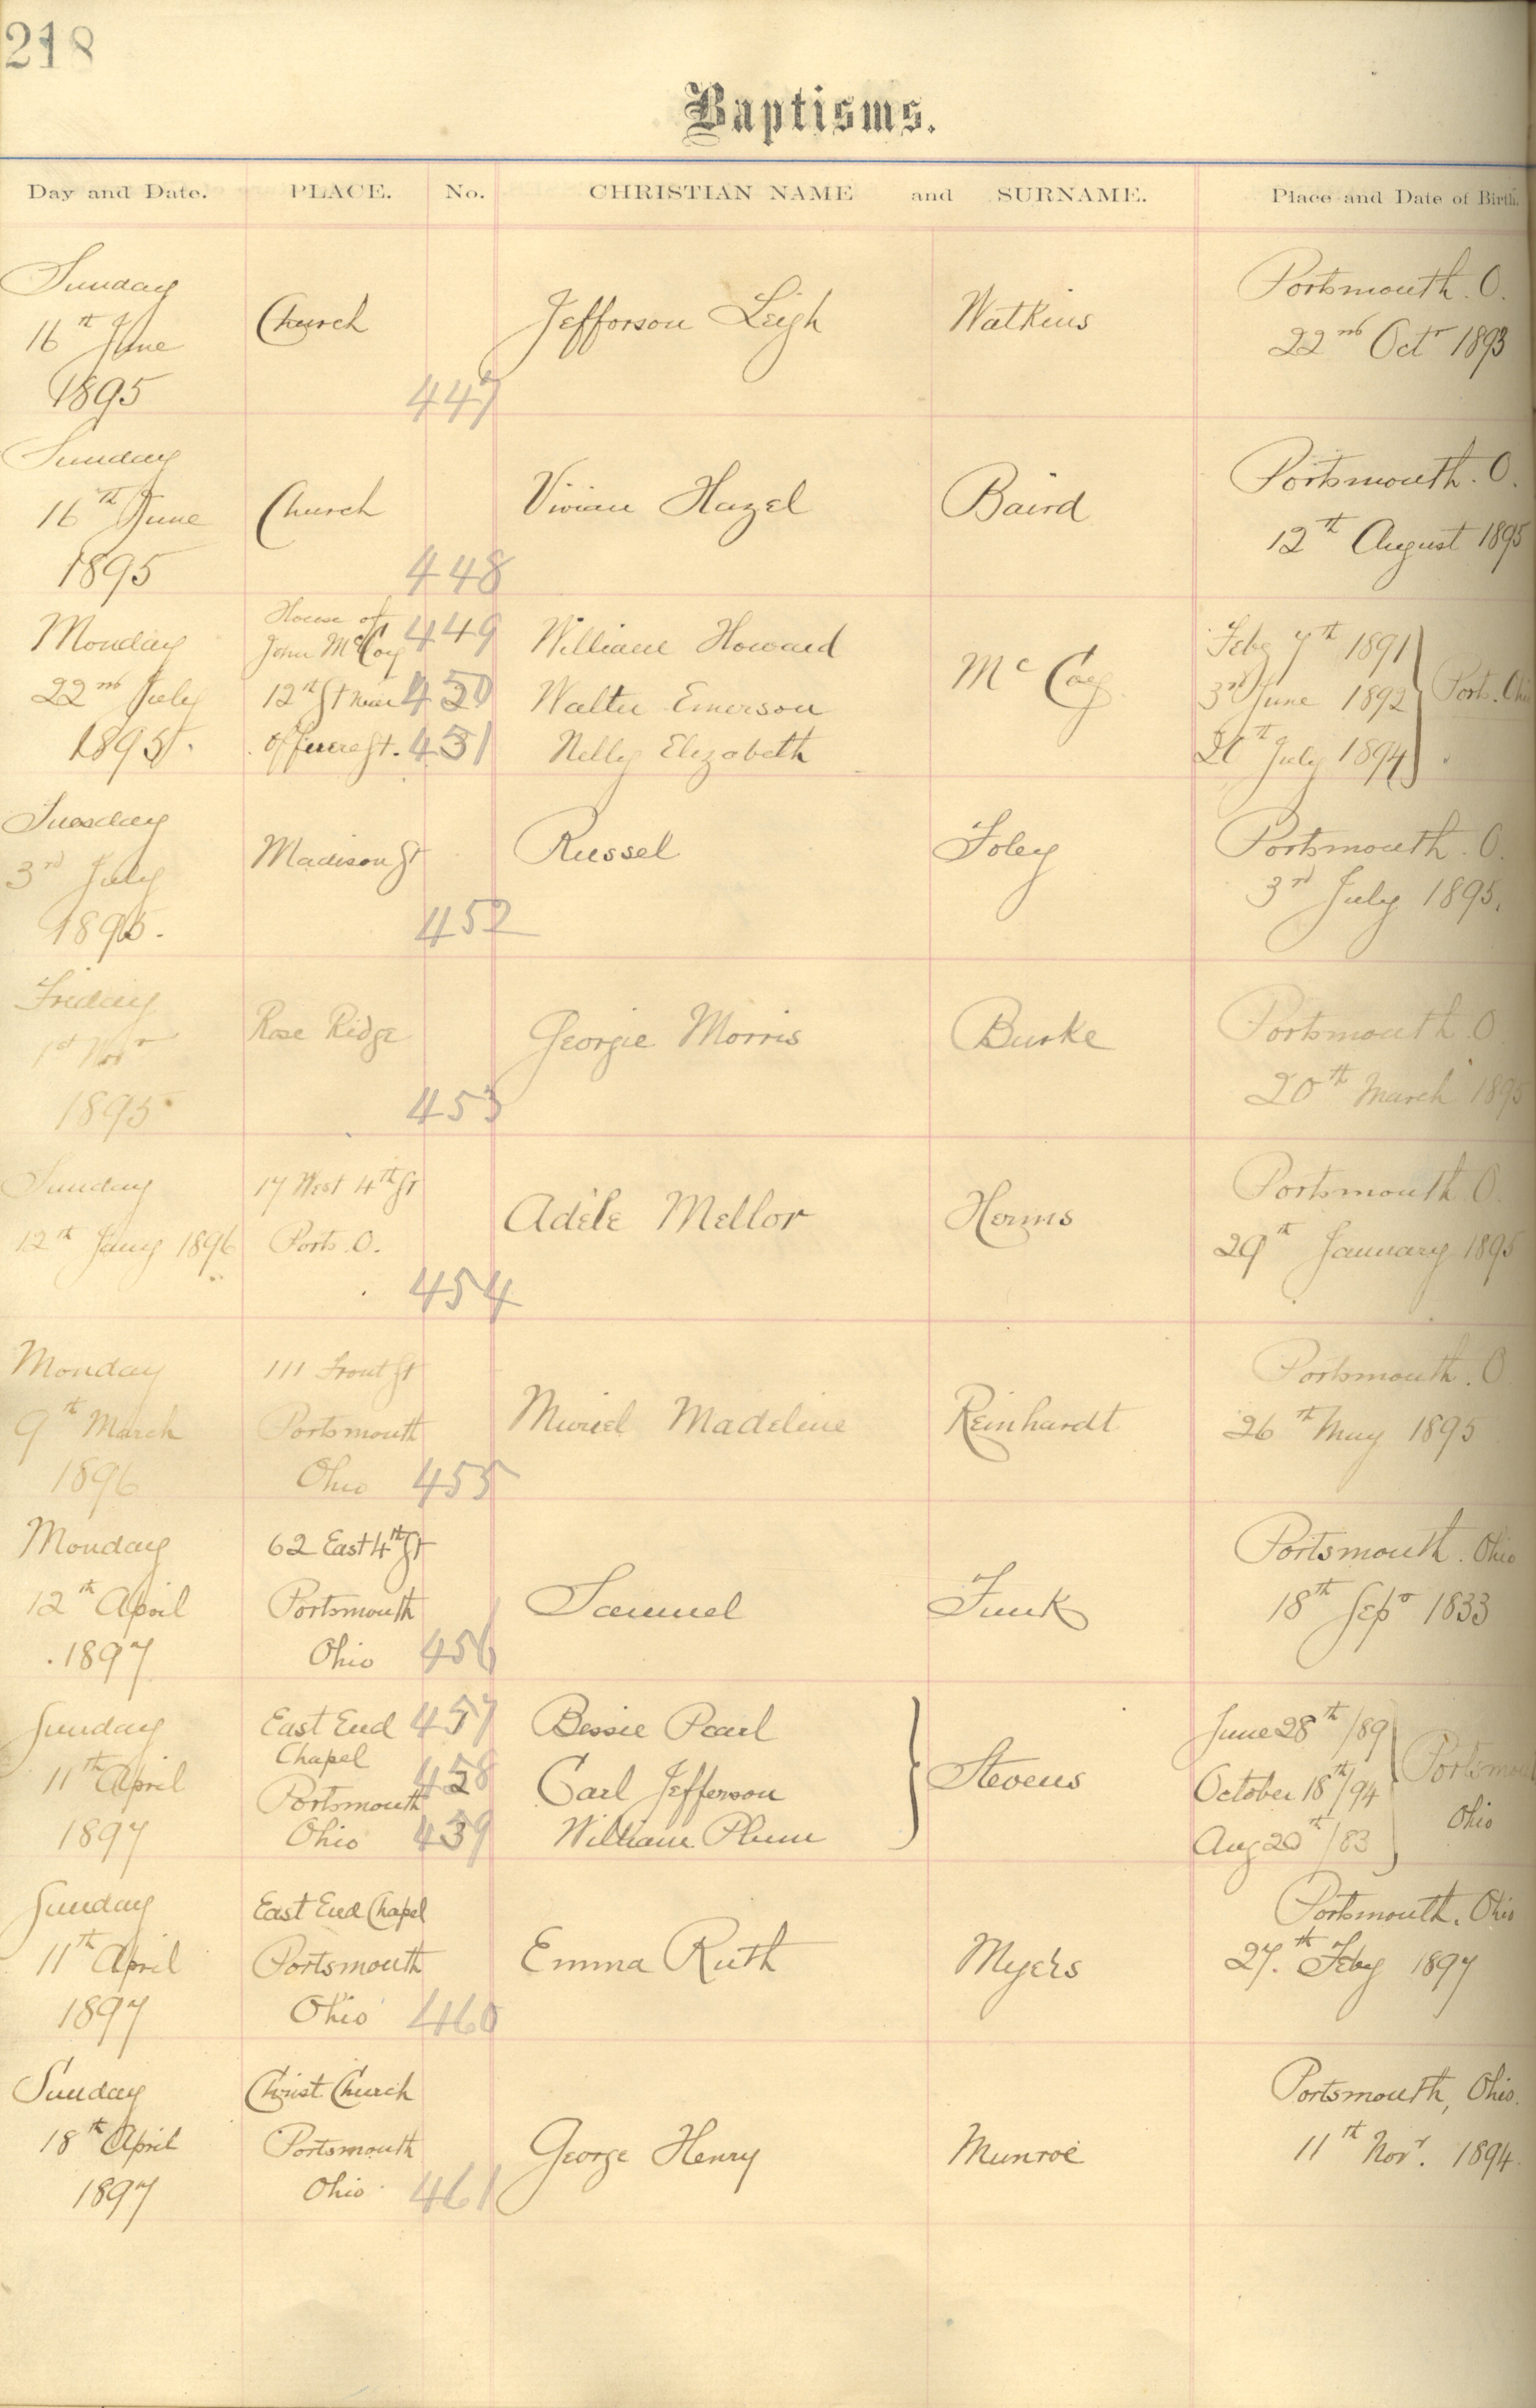 218
Baptisms.
Day and Date. PLACE. No. CHRISTIAN NAME and SURNAME. Place and Date of Birth.
Sunday
16th June
1895
Church
447
Jefferson Leigh
Watkins
Portsmouth. O.
22nd Octr 1893
Sunday
16th June
1895
Church
448
Vivian Hazel
Baird
Portsmouth. O.
12th August 1895
Monday
22nd July
1895.
House of
John McCoy
12th St near
St.
449
450
451
William Howard
Walter Emerson
Nelly Elizabeth
McCoy
Feby 7th 1891
3rd June 1892
20th July 1894
Ports. Ohio
Tuesday
3rd July
1895.
Madison St
452
Russel
Foley
Portsmouth. O.
3rd July 1895.
Friday
1st Novr
1895
Rose Ridge
453
Georgie Morris
Burke
Portsmouth O
20th March 1895
Sunday
12th Jany 1896
17 West 4th St
Ports. O.
454
Adéle Mellor
Herms
Portsmouth O.
29th January 1895
Monday
9th March
1896
111 Front St
Portsmouth
Ohio
455
Muriel Madeline
Reinhardt
Portsmouth. O
26th May 1895
Monday
12th April
1897
62 East 4th St
Portsmouth
Ohio
456
Samuel
Funk
Portsmouth. Ohio
18th Sepr 1833
Sunday
11th April
1897
East End
Chapel
Portsmouth
Ohio
457
458
459
Bessie Pearl
Carl Jefferson
William Plum
Stevens
June 28th /89
October 18th /94
Aug 20th /83
Portsmou
Ohio
Sunday
11th April
1897
East End Chapel
Portsmouth
Ohio
460
Emma Ruth
Myers
Portsmouth, Ohio
27.th Feby 1897
Sunday
18th April
1897
Christ Church
Portsmouth
Ohio
461
George Henry
Munroe
Portsmouth, Ohio.
11th Novr. 1894.